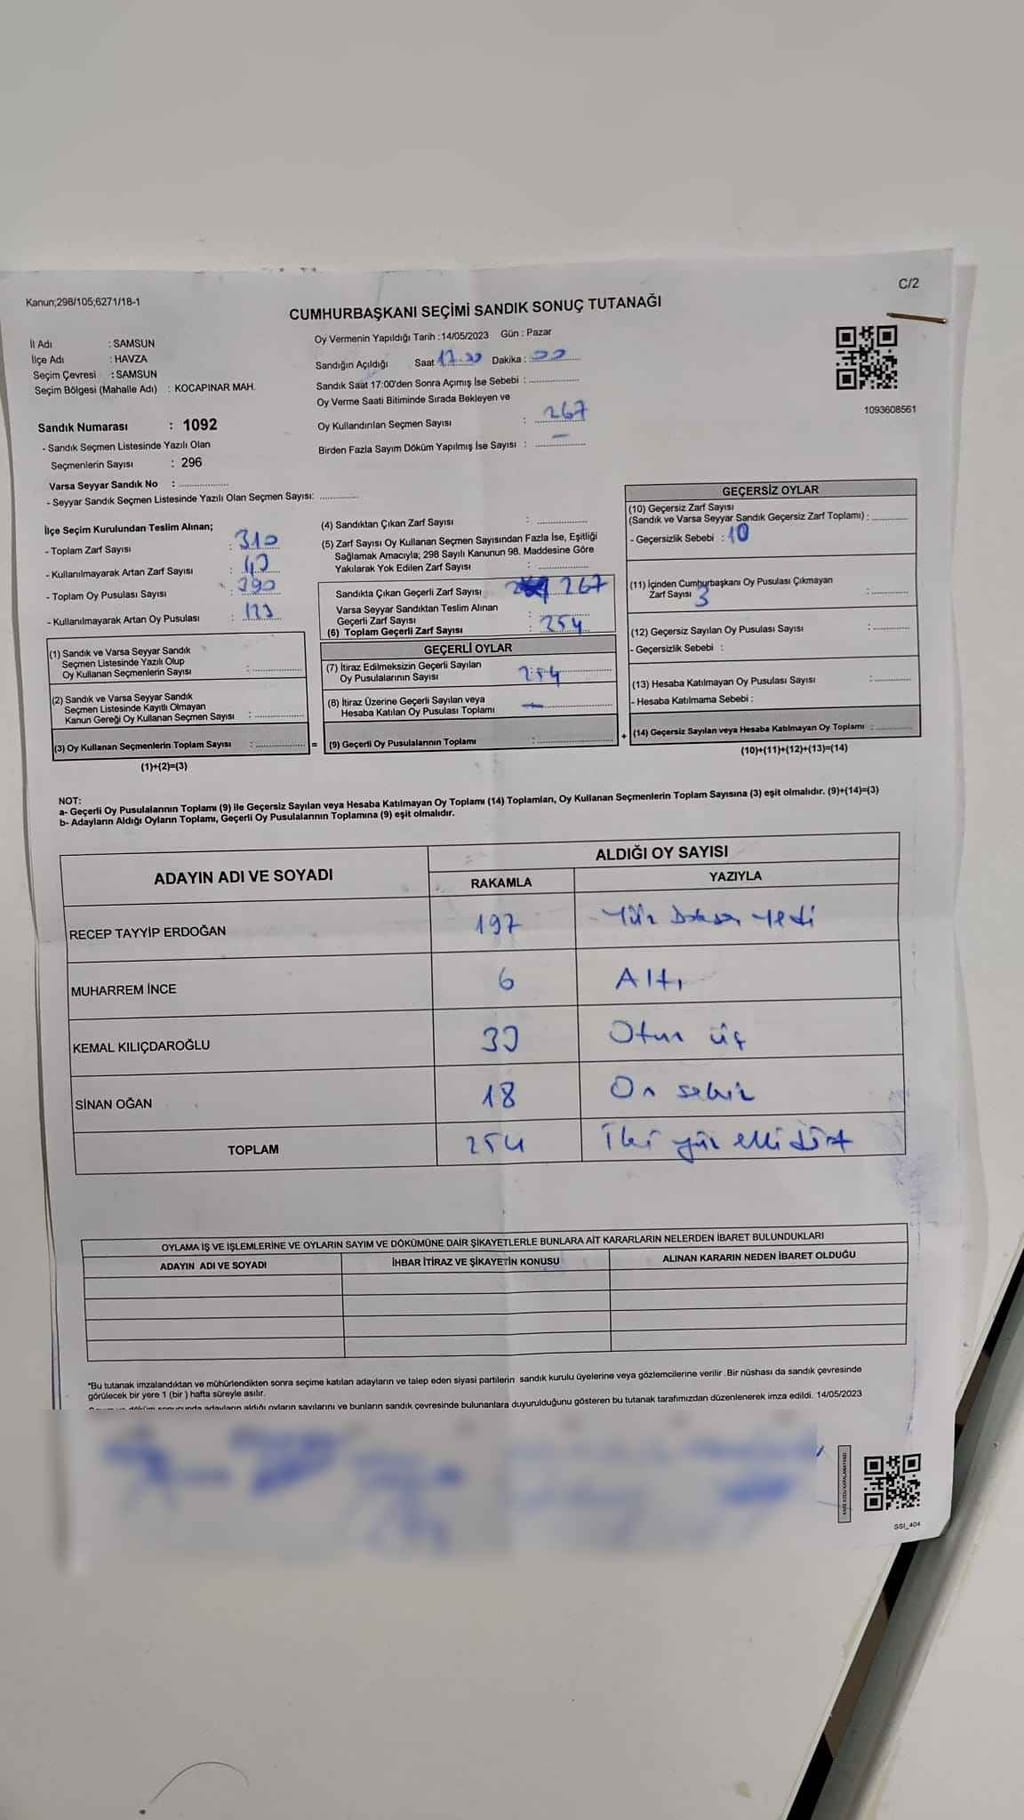 Kanun;298/105;6271/18-1
C/2
CUMHURBAŞKANI SEÇİMİ SANDIK SONUÇ TUTANAĞI
İl Adı : SAMSUN
İlçe Adı : HAVZA
Seçim Çevresi : SAMSUN
Seçim Bölgesi (Mahalle Adı) : KOCAPINAR MAH.
Oy Vermenin Yapıldığı Tarih :14/05/2023 Gün : Pazar
Sandığın Açıldığı Saat 17.00 Dakika : 00
Sandık Saat 17:00'den Sonra Açımış İse Sebebi :
Oy Verme Saati Bitiminde Sırada Bekleyen ve
Oy Kullandırılan Seçmen Sayısı : 267
Birden Fazla Sayım Döküm Yapılmış İse Sayısı : —
1093608561
Sandık Numarası : 1092
- Sandık Seçmen Listesinde Yazılı Olan
Seçmenlerin Sayısı : 296
Varsa Seyyar Sandık No :
- Seyyar Sandık Seçmen Listesinde Yazılı Olan Seçmen Sayısı:
İlçe Seçim Kurulundan Teslim Alınan;
- Toplam Zarf Sayısı : 310
- Kullanılmayarak Artan Zarf Sayısı : 43
- Toplam Oy Pusulası Sayısı : 390
- Kullanılmayarak Artan Oy Pusulası : 123
(1) Sandık ve Varsa Seyyar Sandık
Seçmen Listesinde Yazılı Olup
Oy Kullanan Seçmenlerin Sayısı :
(2) Sandık ve Varsa Seyyar Sandık
Seçmen Listesinde Kayıtlı Olmayan
Kanun Gereği Oy Kullanan Seçmen Sayısı :
(3) Oy Kullanan Seçmenlerin Toplam Sayısı : =
(1)+(2)=(3)
(4) Sandıktan Çıkan Zarf Sayısı :
(5) Zarf Sayısı Oy Kullanan Seçmen Sayısından Fazla İse, Eşitliği
Sağlamak Amacıyla; 298 Sayılı Kanunun 98. Maddesine Göre
Yakılarak Yok Edilen Zarf Sayısı :
Sandıkta Çıkan Geçerli Zarf Sayısı 267
Varsa Seyyar Sandıktan Teslim Alınan
Geçerli Zarf Sayısı :
(6) Toplam Geçerli Zarf Sayısı : 254
GEÇERLİ OYLAR
(7) İtiraz Edilmeksizin Geçerli Sayılan
Oy Pusulalarının Sayısı : 254
(8) İtiraz Üzerine Geçerli Sayılan veya
Hesaba Katılan Oy Pusulası Toplamı : —
(9) Geçerli Oy Pusulalarının Toplamı : +
GEÇERSİZ OYLAR
(10) Geçersiz Zarf Sayısı
(Sandık ve Varsa Seyyar Sandık Geçersiz Zarf Toplamı) :
- Geçersizlik Sebebi : 10
(11) İçinden Cumhurbaşkanı Oy Pusulası Çıkmayan
Zarf Sayısı 3 :
(12) Geçersiz Sayılan Oy Pusulası Sayısı :
- Geçersizlik Sebebi :
(13) Hesaba Katılmayan Oy Pusulası Sayısı :
- Hesaba Katılmama Sebebi :
(14) Geçersiz Sayılan veya Hesaba Katılmayan Oy Toplamı :
(10)+(11)+(12)+(13)=(14)
NOT:
a- Geçerli Oy Pusulalarının Toplamı (9) ile Geçersiz Sayılan veya Hesaba Katılmayan Oy Toplamı (14) Toplamları, Oy Kullanan Seçmenlerin Toplam Sayısına (3) eşit olmalıdır. (9)+(14)=(3)
b- Adayların Aldığı Oyların Toplamı, Geçerli Oy Pusulalarının Toplamına (9) eşit olmalıdır.
ADAYIN ADI VE SOYADI
ALDIĞI OY SAYISI
RAKAMLA YAZIYLA
RECEP TAYYİP ERDOĞAN 197 Yüz Doksan Yedi
MUHARREM İNCE 6 Altı
KEMAL KILIÇDAROĞLU 33 Otuz üç
SİNAN OĞAN 18 On sekiz
TOPLAM 254 İki yüz elli dört
OYLAMA İŞ VE İŞLEMLERİNE VE OYLARIN SAYIM VE DÖKÜMÜNE DAİR ŞİKAYETLERLE BUNLARA AİT KARARLARIN NELERDEN İBARET BULUNDUKLARI
ADAYIN ADI VE SOYADI İHBAR İTİRAZ VE ŞİKAYETİN KONUSU ALINAN KARARIN NEDEN İBARET OLDUĞU
*Bu tutanak imzalandıktan ve mühürlendikten sonra seçime katılan adayların ve talep eden siyasi partilerin sandık kurulu üyelerine veya gözlemcilerine verilir. Bir nüshası da sandık çevresinde
görülecek bir yere 1 (bir) hafta süreyle asılır.
adayların aldığı oyların sayılarını ve bunların sandık çevresinde bulunanlara duyurulduğunu gösteren bu tutanak tarafımızdan düzenlenerek imza edildi. 14/05/2023
SSI_404